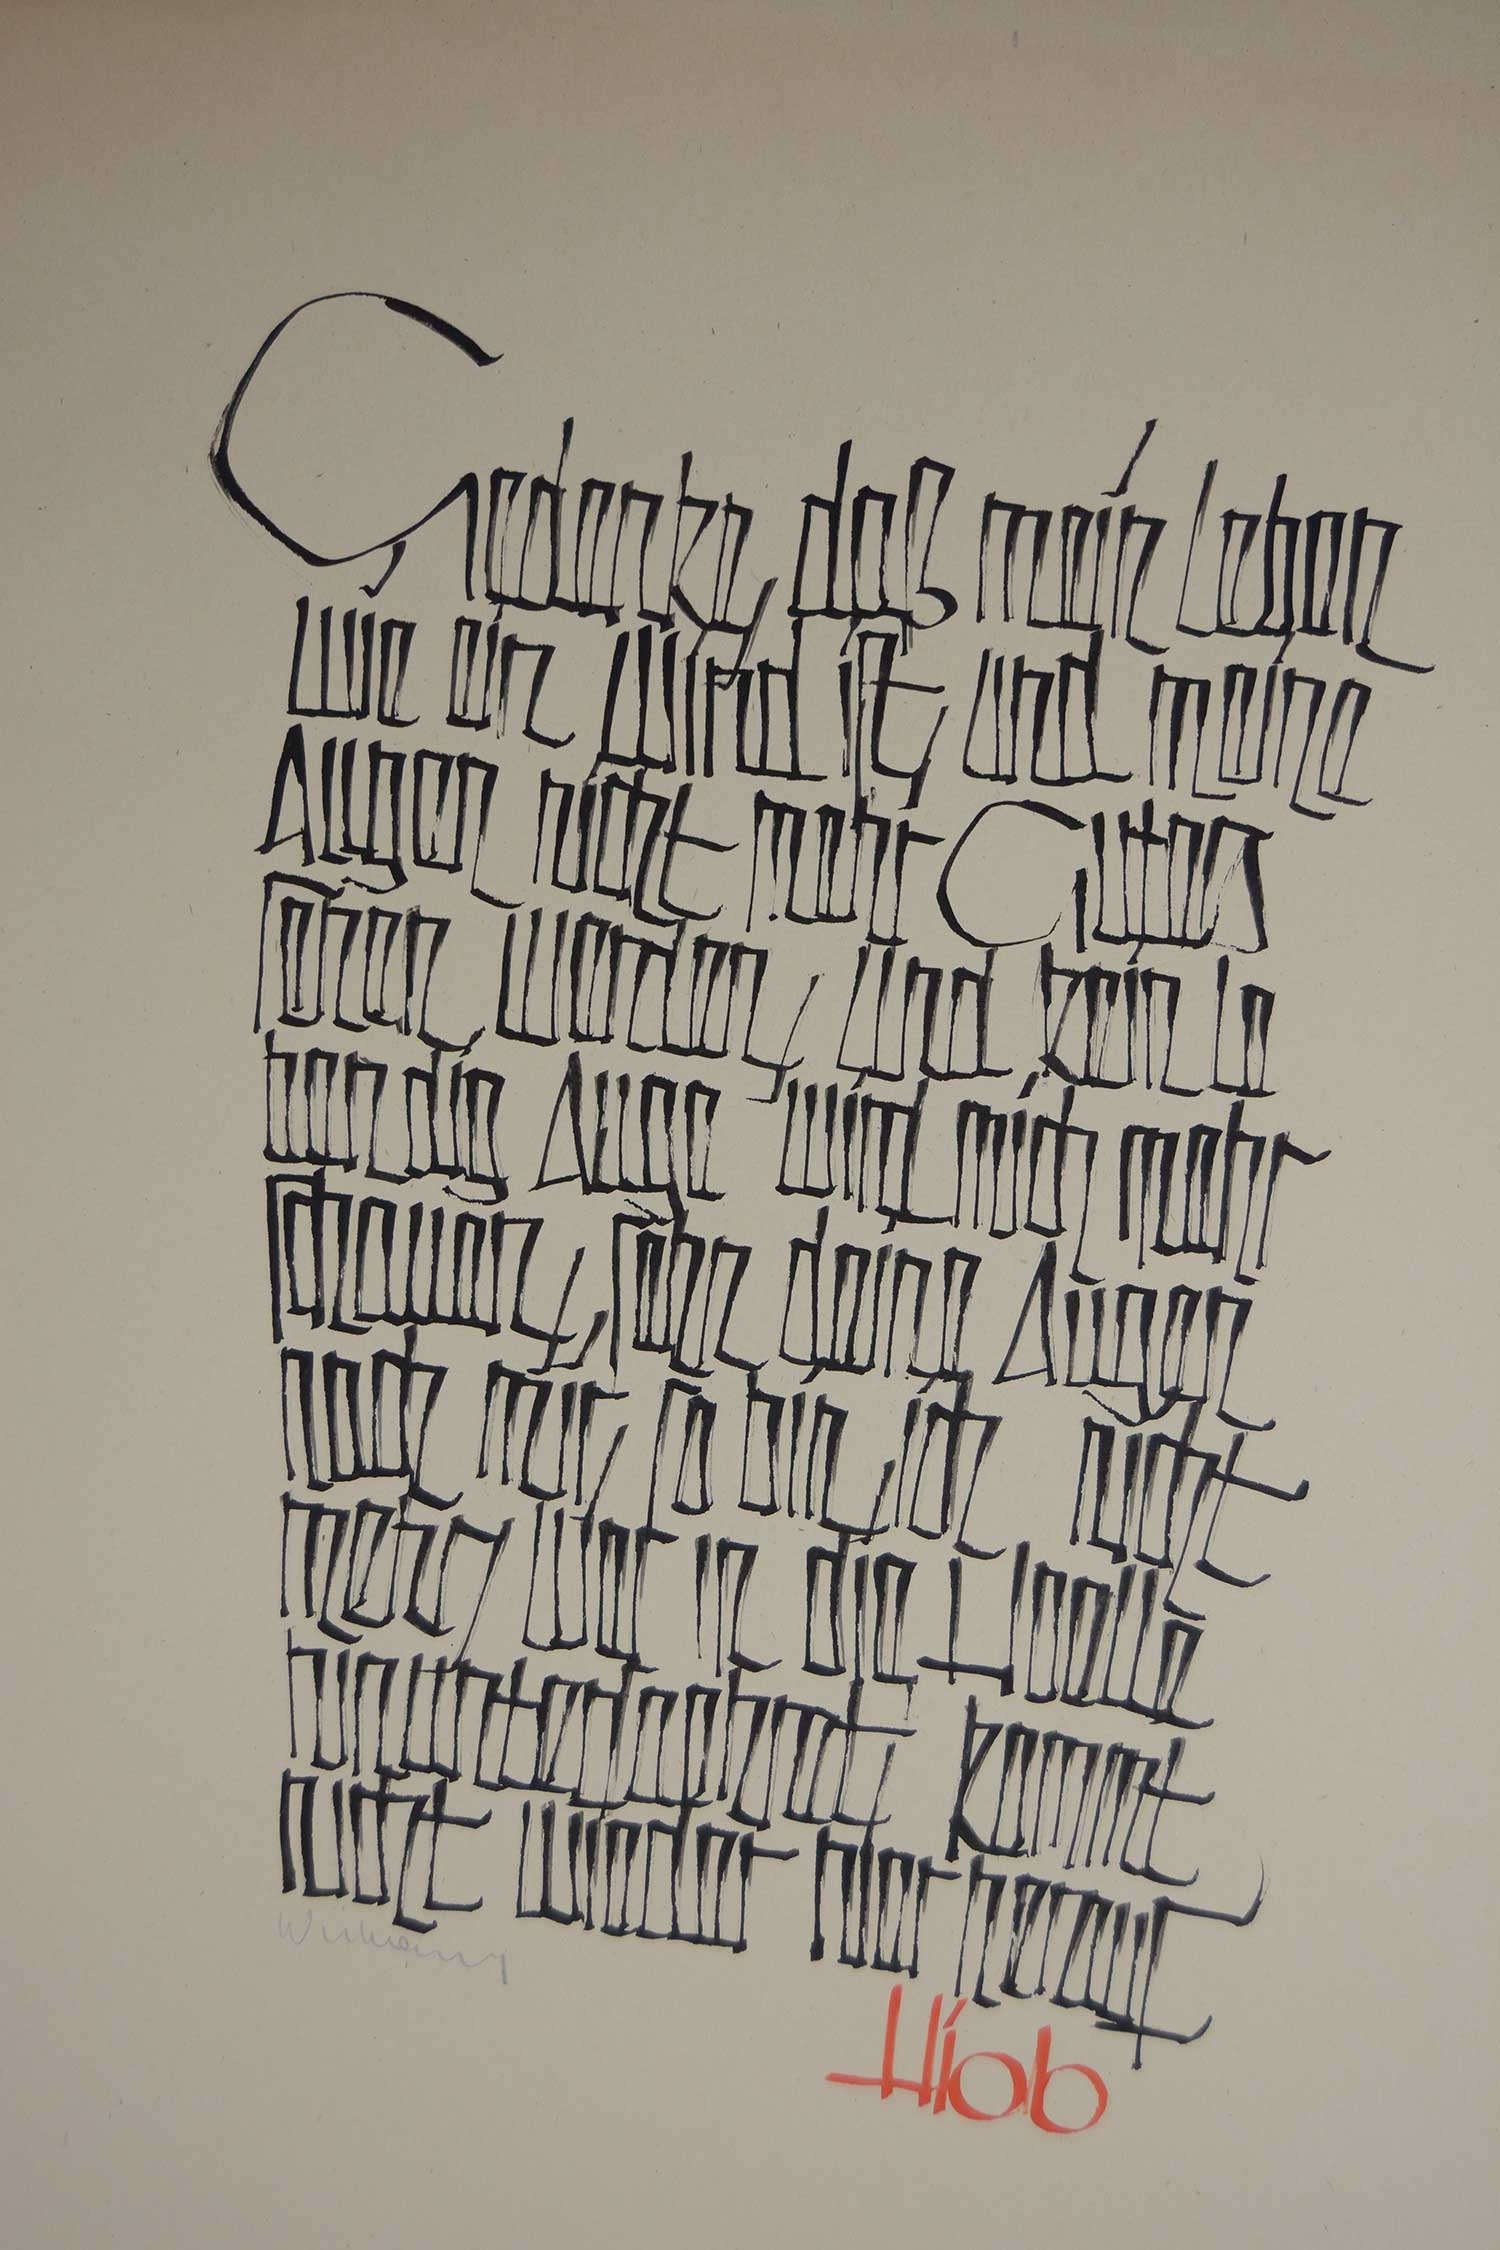 Gedenke, daß mein Leben
wie ein Wind ist, und meine
Augen nicht mehr Gutes
sehen werden, und kein le
bendig Auge wird mich mehr
schauen, sehn deine Augen
nach mir, so bin ich nicht
mehr, wer in die Hoelle
hinunterfaehrt, kommt
nicht wieder hier herauf
Hiob